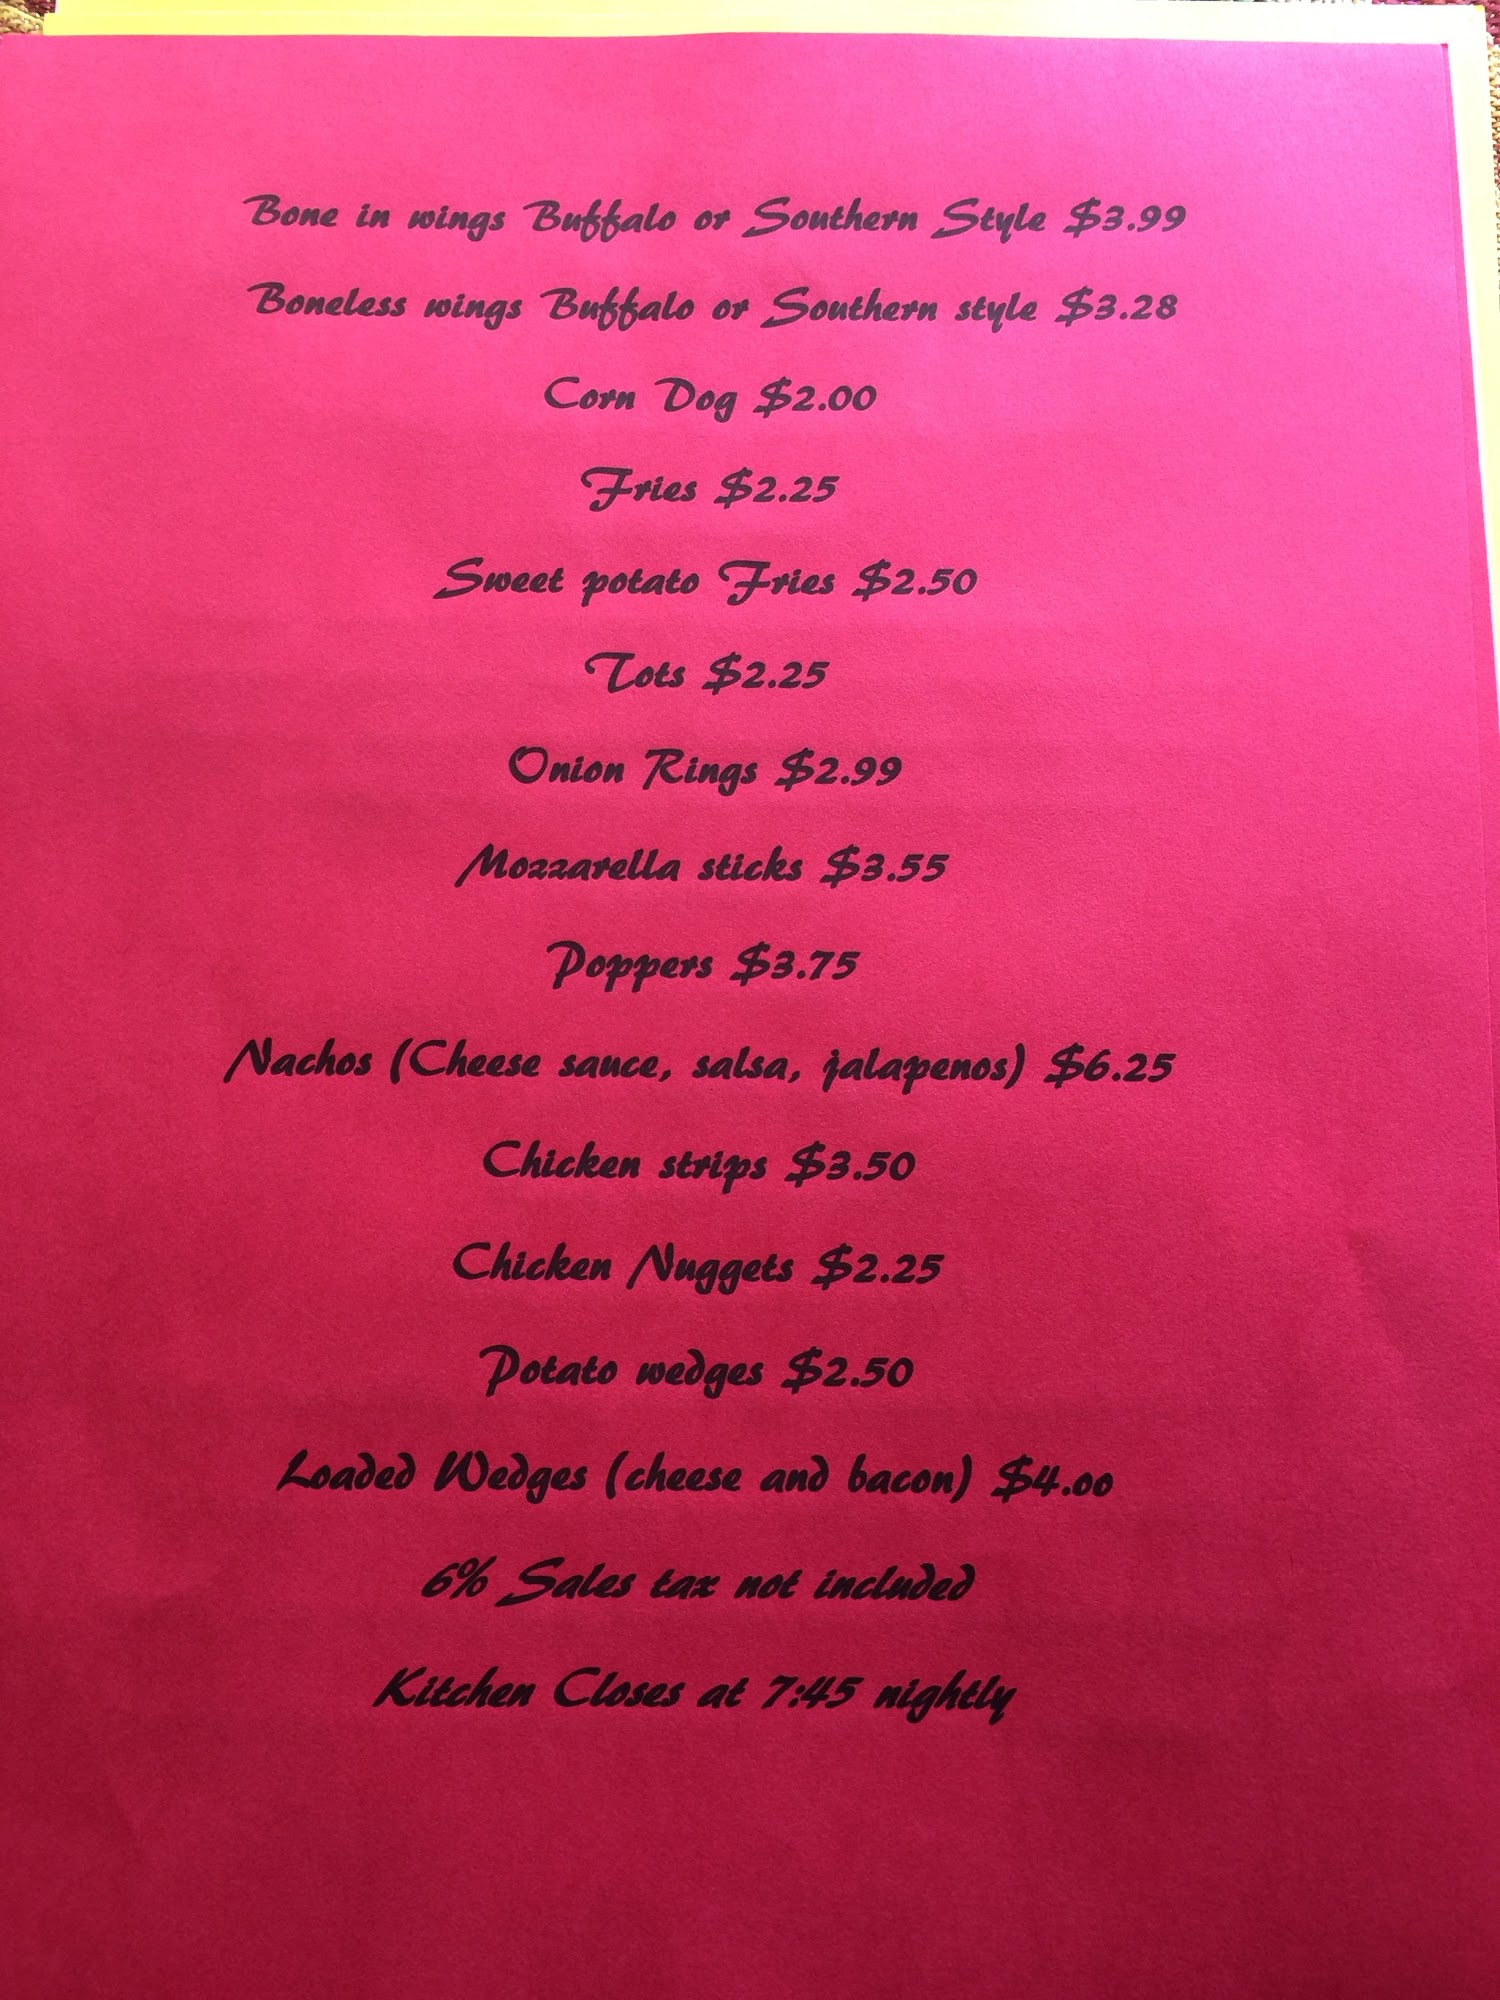 Bone in wings Buffalo or Southern Style $3.99
Boneless wings Buffalo or Southern style $3.28
Corn Dog $2.00
Fries $2.25
Sweet potato Fries $2.50
Tots $2.25
Onion Rings $2.99
Mozzarella sticks $3.55
Poppers $3.75
Nachos (Cheese sauce, salsa, jalapenos) $6.25
Chicken strips $3.50
Chicken Nuggets $2.25
Potato wedges $2.50
Loaded Wedges (cheese and bacon) $4.00
6% Sales tax not included
Kitchen Closes at 7:45 nightly